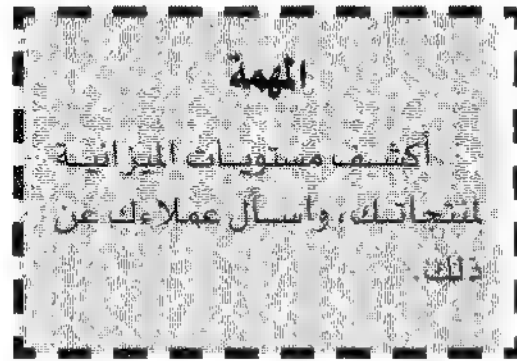 المهمة
أكشف مستويات الميزانية
لمنتجاتك، واسأل عملاءك عن
ذلك.